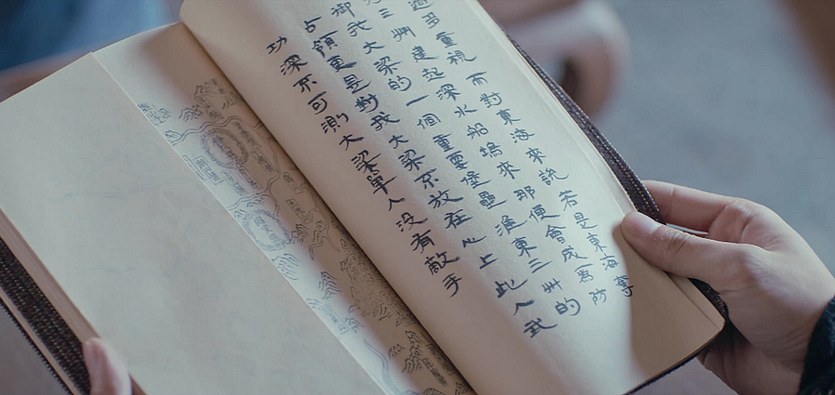 過多重視 而對東海來說 若是東海奪
三州 建起深水船塢來 那便會成爲防
御我大梁的一個重要堡壘 淮東三州的
占領更是對我大梁不放在心上 此人武
功深不可測 大梁單人沒有敵手